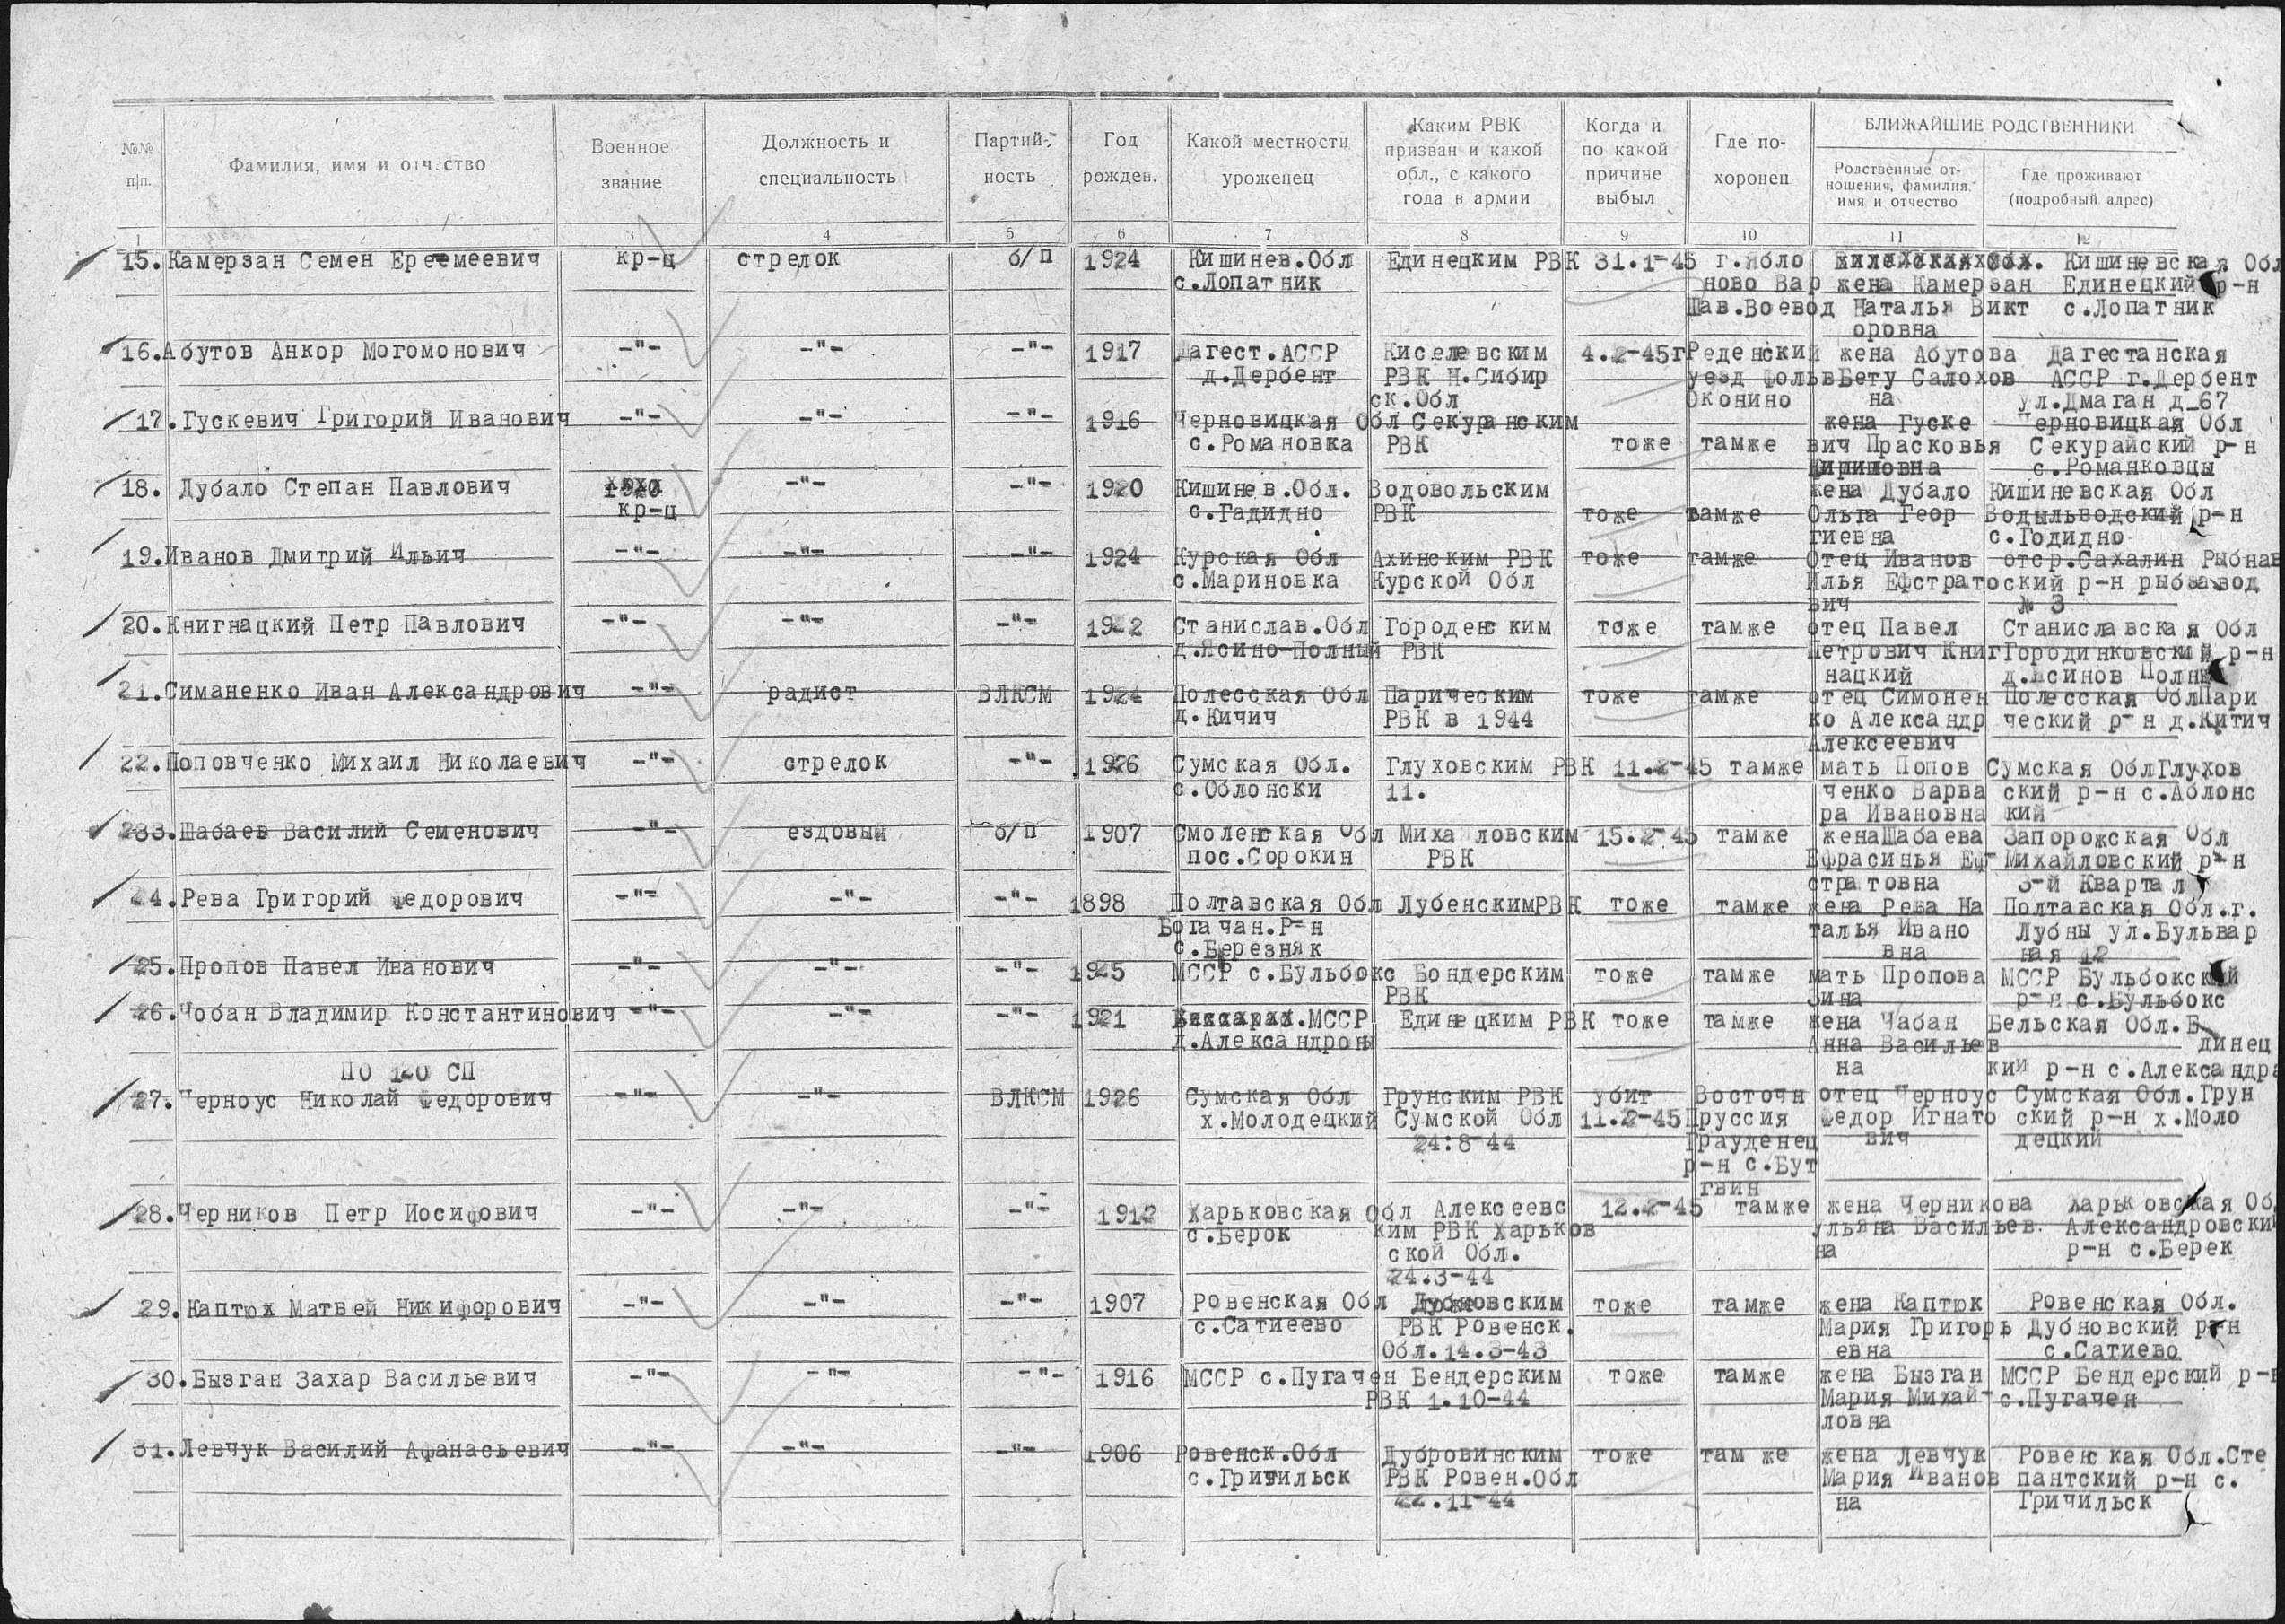 №№ п/п.
Фамилия, имя и отчество
Военное звание
Должность и специальность
Партий- ность
Год рожден.
Какой местности уроженец
Каким РВК призван и какой обл., с какого года в армии
Когда и по какой причине выбыл
Где по- хоронен
БЛИЖАЙШИЕ РОДСТВЕННИКИ
Родственные от- ношения, фамилия, имя и отчество
Где проживают (подробный адрес)
1 4 5 6 7 8 9 10 11 12
15. Камерзан Семен Ереемеевич кр-ц стрелок б/п 1924 Кишинев.Обл Единецким РВК 31.1-45 г.Ябло Кишиневская Обл
с.Лопатник ново Вар жена Камерзан Единецкий р-н
Шав.Воевод Наталья Викт с.Лопатник
оровна
16. Абутов Анкор Могомонович -"- -"- -"- 1917 Дагест.АССР Киселевским 4.2-45г Реденский жена Абутова Дагестанская
д.Дербент РВК Н.Сибир уезд фольв Бету Салохов АССР г.Дербент
ск.Обл Оконино на ул.Дмаган д_67
17. Гускевич Григорий Иванович -"- -"- -"- 1916 Черновицкая Обл Секуранским жена Гуске Черновицкая Обл
с.Романовка РВК тоже тамже вич Прасковья Секурайский р-н
с.Романковцы
18. Дубало Степан Павлович -"- -"- 1920 Кишинев.Обл. Водовольским жена Дубало Кишиневская Обл
кр-ц с.Гадидно РВК тоже тамже Ольга Геор Водыльводский р-н
гиевна с.Годидно
19. Иванов Дмитрий Ильич -"- -"- -"- 1924 Курская Обл Ахинским РВК тоже тамже Отец Иванов отср.Сахалин Рыбнав
с.Мариновка Курской Обл Илья Ефстрато ский р-н рыбзавод
вич № 3
20. Книгнацкий Петр Павлович -"- -"- -"- 1922 Станислав.Обл Городенским тоже тамже отец Павел Станиславская Обл
д.Ясино-Полный РВК Петрович Книг Городинковский р-н
нацкий д.Ясинов Полны
21. Симаненко Иван Александрович -"- радист ВЛКСМ 1924 Полесская Обл Парическим тоже тамже отец Симонен Полесская Обл Пари
д.Кичич РВК в 1944 ко Александр ческий р-н д.Китич
Алексеевич
22. Поповченко Михаил Николаевич -"- стрелок -"- 1926 Сумская Обл. Глуховским РВК 11.2-45 тамже мать Попов Сумская Обл Глухов
с.Облонски 11. ченко Варва ский р-н с.Аблонс
ра Ивановна кий
233. Шабаев Василий Семенович -"- ездовый б/п 1907 Смоленская Обл Миха ловским 15.2-45 тамже жена Шабаева Запорожская Обл
пос.Сорокин РВК Ефрасинья Еф- Михайловский р-н
стратовна 3-й Квартал
24. Рева Григорий Федорович -"- -"- -"- 1898 Полтавская Обл Лубенским РВК тоже тамже жена Рева На Полтавская Обл.г.
Богачан.Р-н талья Ивано Лубны ул.Бульвар
с.Березняк вна ная 12
25. Пропов Павел Иванович -"- -"- -"- 1925 МССР с.Бульбокс Бондерским тоже тамже мать Пропова МССР Бульбокский
РВК Зина р-н с.Бульбокс
26. Чобан Владимир Константинович -"- -"- -"- 1921 МССР Единецким РВК тоже тамже жена Чабан Бельская Обл.Е
д.Александроны Анна Васильев динец
на кий р-н с.Александра
ПО 120 СП
27. Черноус Николай Федорович -"- -"- ВЛКСМ 1926 Сумская Обл Грунским РВК убит Восточн отец Черноус Сумская Обл.Грун
х.Молодецкий Сумской Обл 11.2-45 Пруссия Федор Игнато ский р-н х.Моло
24:8-44 Грауденец вич децкий
р-н с.Бут
гвин
28. Черников Петр Иосифович -"- -"- -"- 1912 Харьковская Обл Алексеевс 12.2-45 тамже жена Черникова Харьковская Об
с.Берок ким РВК Харьков Ульяна Васильев. Александровский
ской Обл. на р-н с.Берек
24.3-44
29. Каптюх Матвей Никифорович -"- -"- -"- 1907 Ровенская Обл Дубновским тоже тамже жена Каптюк Ровенская Обл.
с.Сатиеево РВК Ровенск. Мария Григорь Дубновский р-н
Обл.14.3-43 евна с.Сатиево
30. Бызган Захар Васильевич -"- -"- -"- 1916 МССР с.Пугачен Бендерским тоже тамже жена Бызган МССР Бендерский р-н
РВК 1.10-44 Мария Михай- с.Пугачен
ловна
31. Левчук Василий Афанасьевич -"- -"- -"- 1906 Ровенск.Обл Дубровинским тоже там же жена Левчук Ровенская Обл.Сте
с.Гричильск РВК Ровен.Обл Мария Иванов пантский р-н с.
22.11-44 на Гричильск